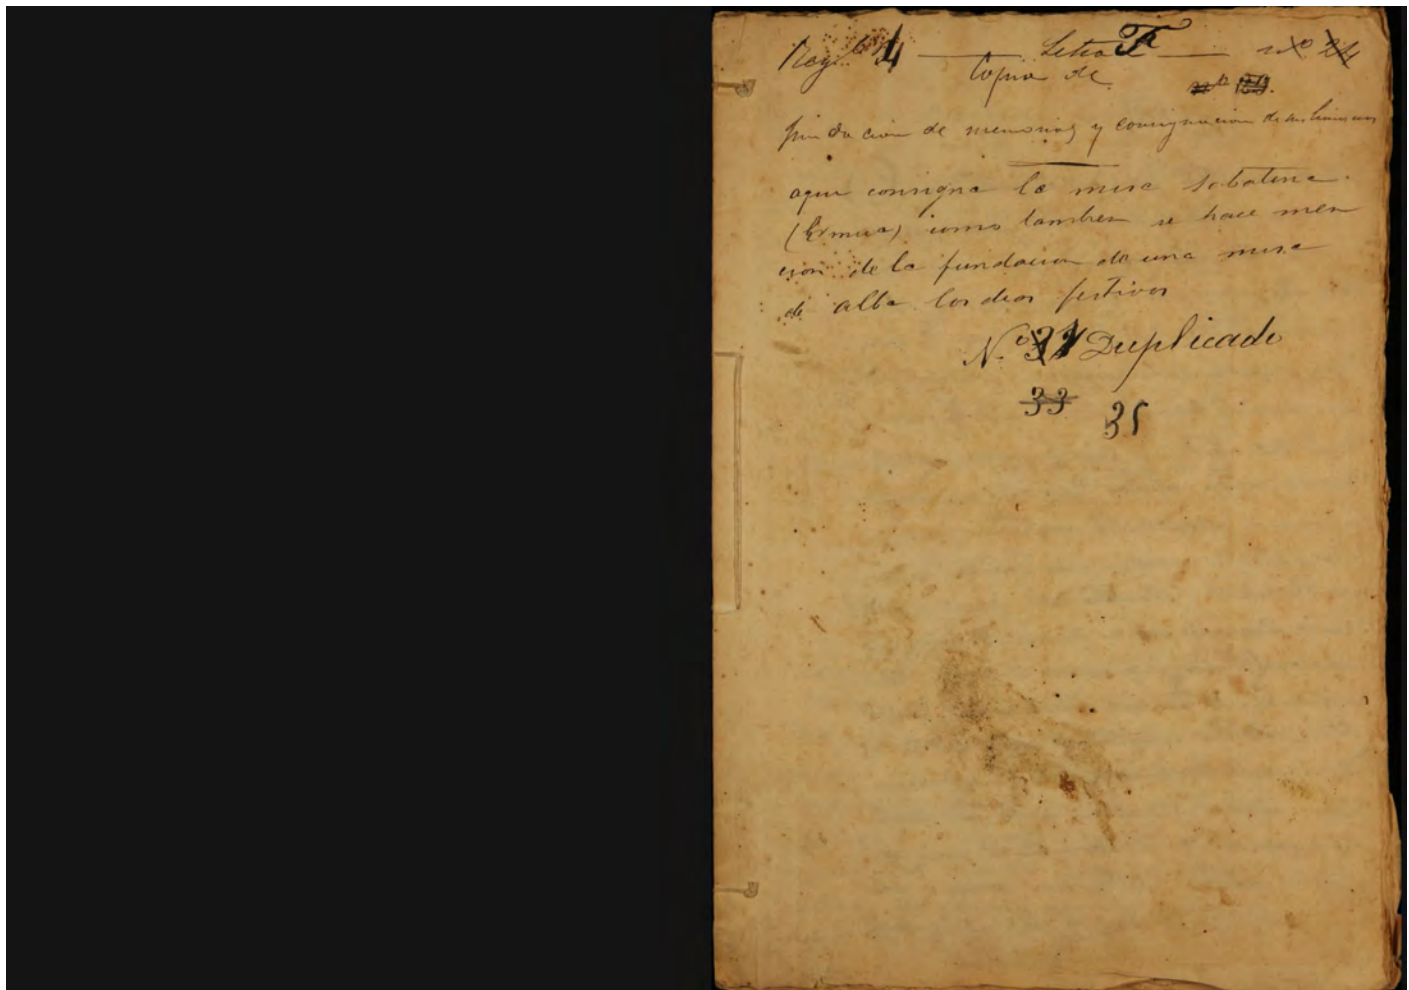 Reg.º 4 Letra F nº 24
Copia de nº
fundacion de memorias y consignacion de
aqui consigna la misa sabatina.
(Ermua) como tambien se hace men
cion de la fundacion de una misa
de alba los dias festivos
N.º Duplicado
33 35